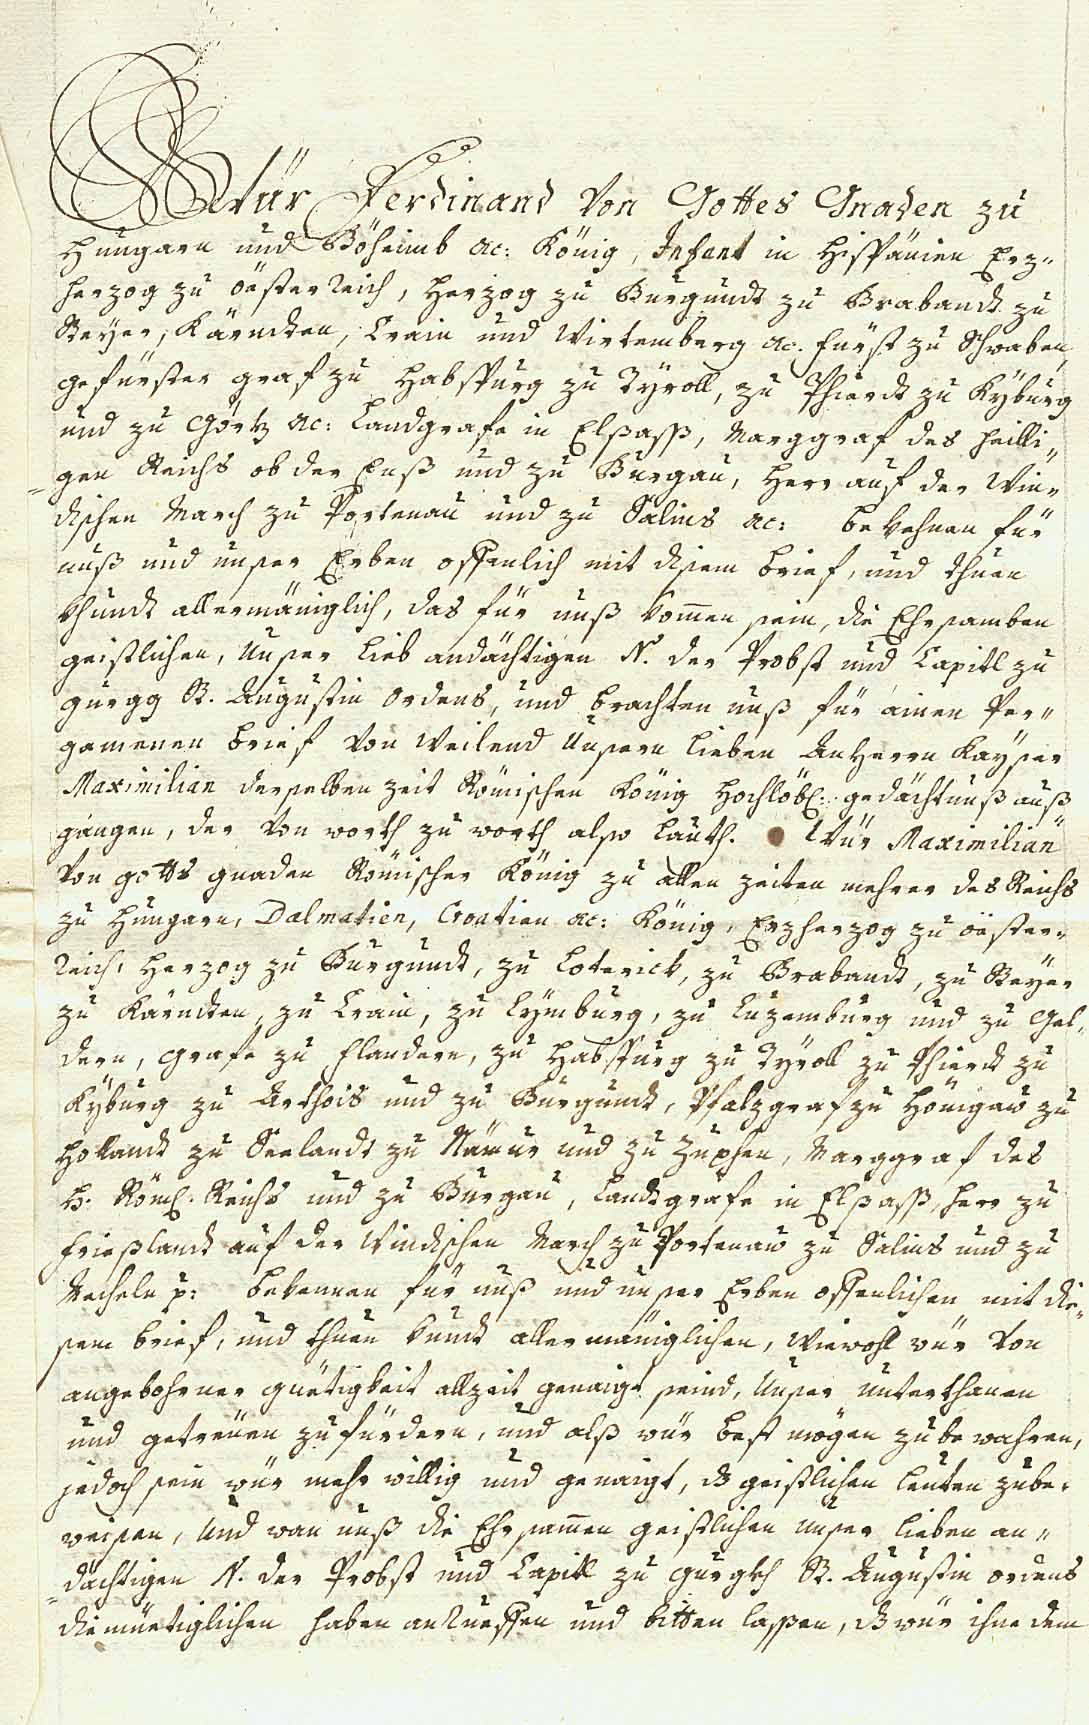 Wür Ferdinand Von Gottes Gnaden zu
Hungarn und Böheimb &c: König, Infant in Hispänien Erz-
herzog zu Öesterreich, Herzog zu Burgundt zu Brabandt zu
Steyer, Kärndten, Crain und Wirtemberg &c. fürst zu Schwaben,
gefürster graf zu Habspurg zu Tyroll, zu Phierdt zu Kyburg
und zu Görtz &c: Landgrafe in Elßasß, Marggraf des heilli-
gen Reichs ob der Enß und zu Burgau, Herr auf der Win-
dischen March zu Portenau und zu Salins &c: bekehnen für
unß und unser Erben offenlich mit disem brief, und thuen
khundt allermäniglich, das für unß komen sein, die Ehrsamben
geistlichen, Unser Lieb andächtigen N. der Probst und Capitl zu
gurgg St. Augustin Ordens, und brachten unß für ainen Per-
gamenen brief von weilend Unsern lieben Anherrn Kayser
Maximilian derselben zeit Römischen König Hochlöbl: gedächtnuß auß
gangen, der von worth zu worth also lauth. Wür Maximilian
von gotts gnaden Römischer König zu allen zeiten mehrer des Reichs
zu Hungarn, Dalmatien, Croatien &c: König, Erzherzog zu öester-
reich, Herzog zu Burgundt, zu Loterick, zu Brabandt, zu Steyer
zu Kärndten, zu Crain, zu Lymburg, zu Luzemburg und zu Gel-
dern, Grafe zu flandern, zu Habspurg zu Tyroll zu Phierdt zu
Kyburg zu Arthois und zu Burgundt, Pfalzgraf zu Hönigau zu
Hollandt zu Seelandt zu Namur und zu Zuphen, Marggraf des
H. Röml. Reichs und zu Burgau, Landtgrafe in Elßasß, Herr zu
frießlandt auf der Windischen March zu Portenau zu Salins und zu
Mecheln p: bekennen für unß und unser Erben offenlichen mit die-
sem brief, und thuen kundt allermäniglichen, Wiewohl wür von
angebohrner guetigkeit allzeit genaigt seind, Unser unterthanen
und getreuen zu fürdern, und alß wür best mögen zu bewahren,
jedoch sein wür mehr willig und genaigt, dß geistlichen leuten zube-
weisen, Und wan unß die Ehrsamen geistlichen Unser lieben an-
dächtigen N. der Probst und Capitl zu gurgkh St. Augustin ordens
diemüetiglichen haben anrueffen und bitten lassen, dß wür ihne dem